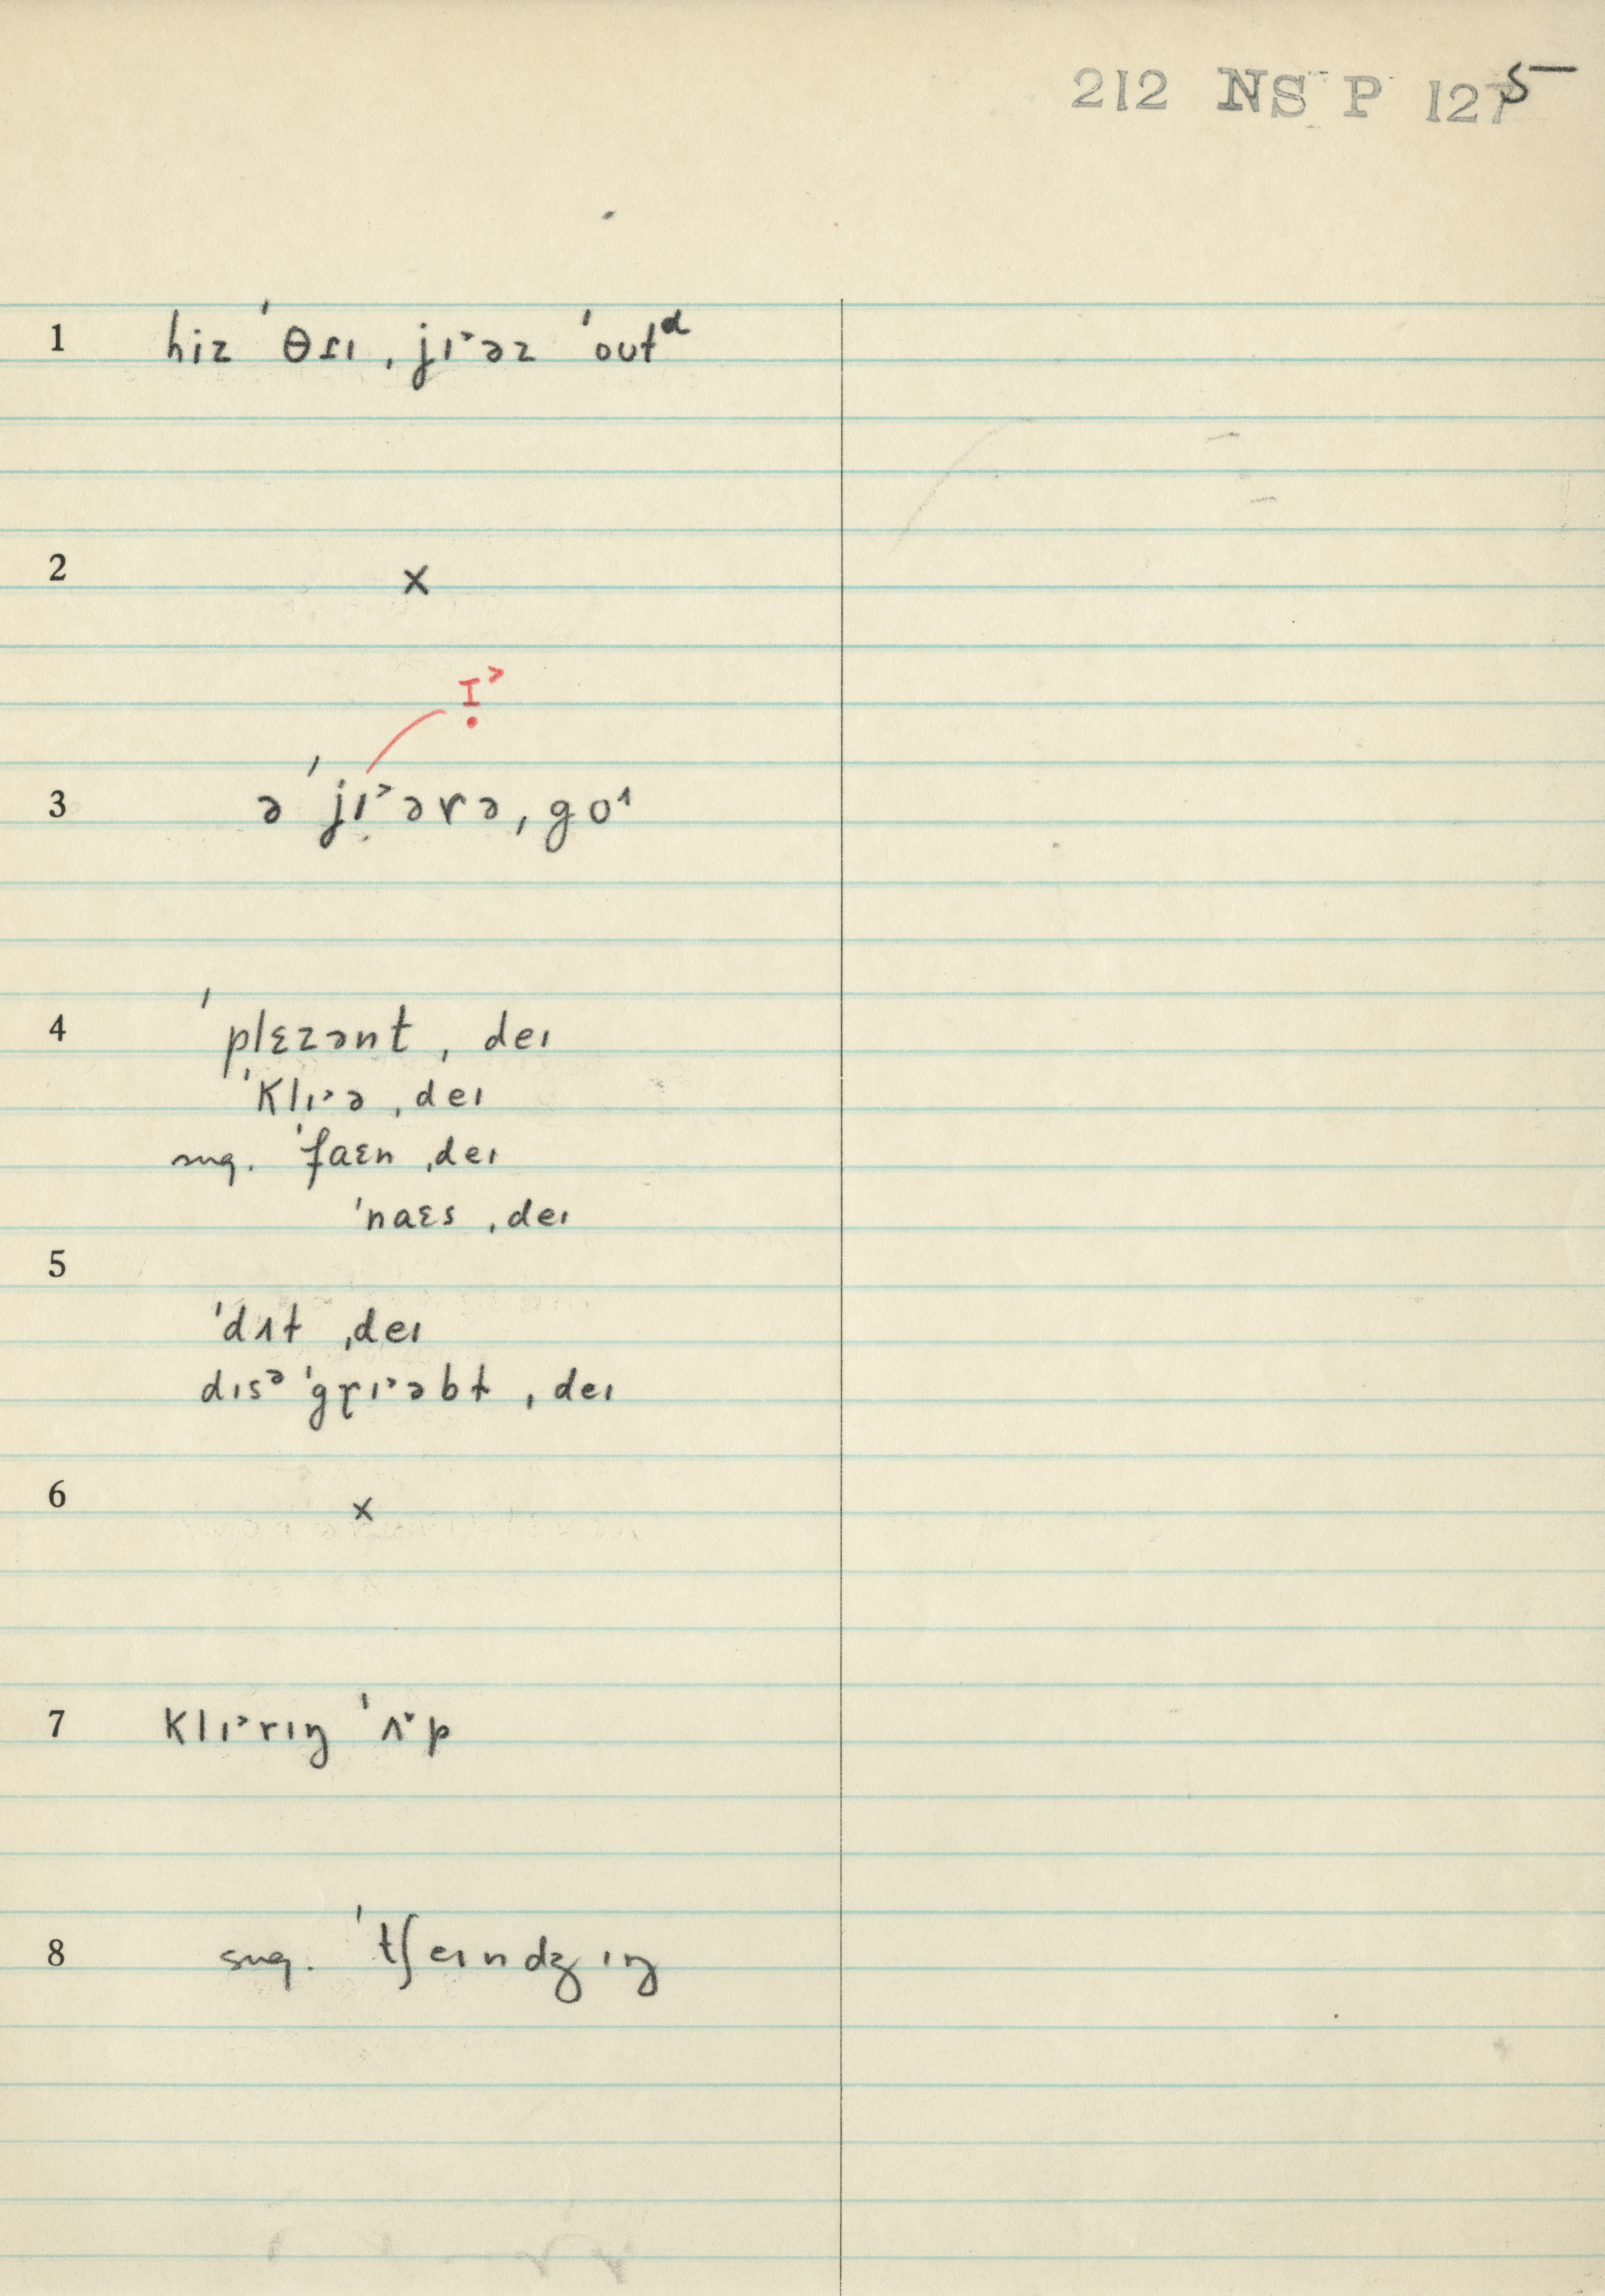 212 NS P 125
1 hiz ˈθɾɪ ˌjɪ˃əz ˈoutᵈ
2 ×
ɪ̣˃
3 ə ˈjɪ̣˃ərə ˌgo˄
4 ˈplɛzənt ˌdeɪ
ˈklɪ˃ə ˌdeɪ
sug. ˈfaɛn ˌdeɪ
ˈnaɛs ˌdeɪ
5
ˈdʌt ˌdeɪ
dɪsᵊ ˈgɽɪ˃əbt ˌdeɪ
6 ×
7 klɪ˃rɪŋ ˈʌ˅p
8 sug. ˈtʃeɪndʒɪŋ